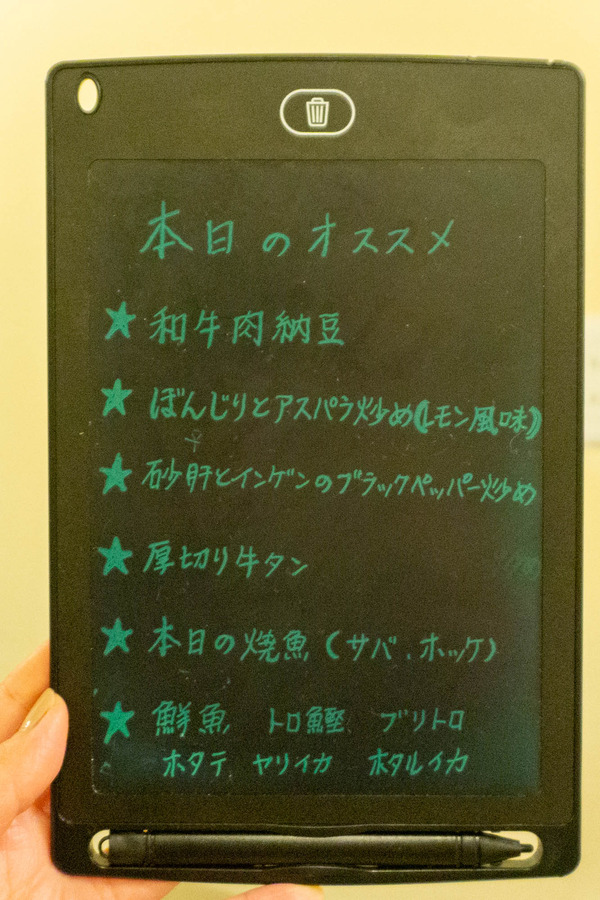 本日のオススメ
★和牛肉納豆
★ぼんじりとアスパラ炒め(レモン風味)
★砂肝とインゲンのブラックペッパー炒め
★厚切り牛タン
★本日の焼魚(サバ、ホッケ)
★鮮魚 トロ鰹 ブリトロ
ホタテ ヤリイカ ホタルイカ